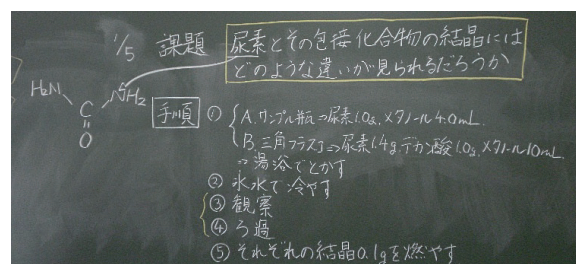 1/5 課題
尿素とその包接化合物の結晶には
どのような違いが見られるだろうか
H₂N
NH₂
C
O
手順
① A. サンプル瓶⇒尿素1.0g、メタノール4.0mL
B. 三角フラスコ⇒尿素1.4g、デカン酸1.0g、メタノール10mL
⇒湯浴でとかす
② 氷水で冷やす
③ 観察
④ ろ過
⑤ それぞれの結晶0.1gを燃やす